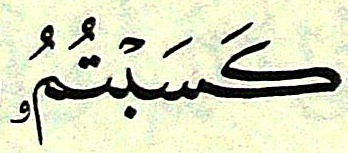 كَسَبْتُمُۥ